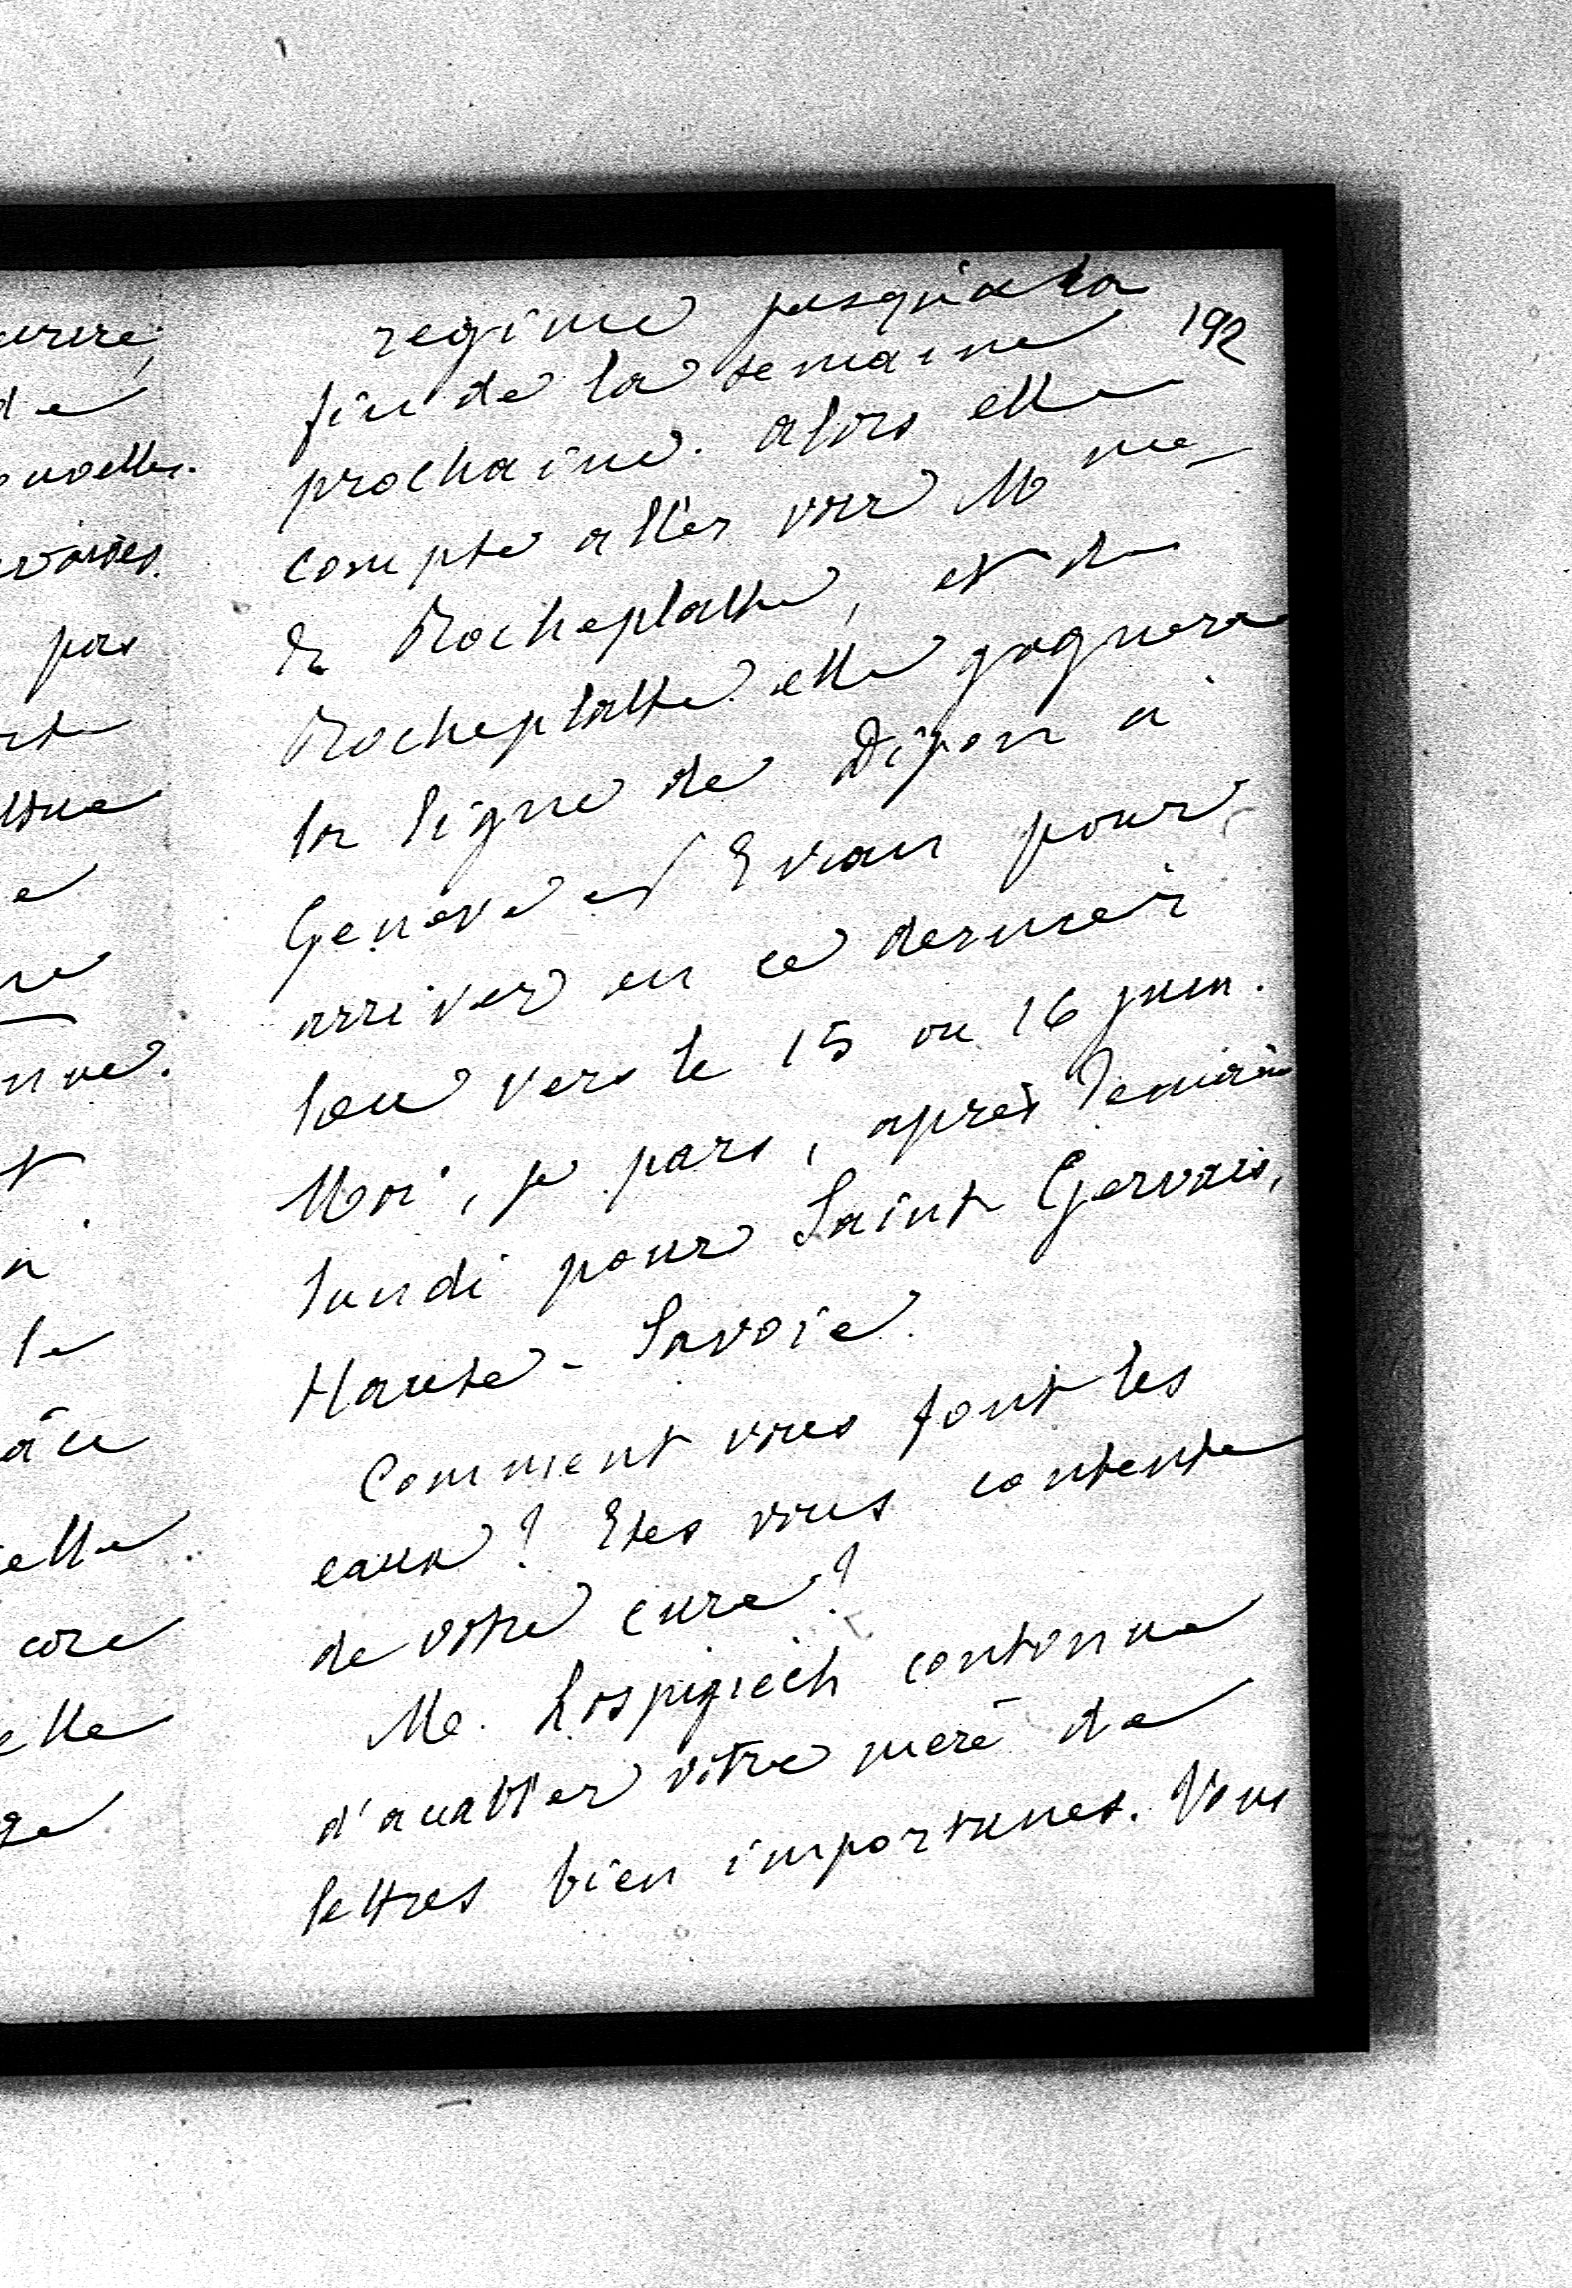 192
régime jusqu'à la
fin de la semaine
prochaine. Alors elle
compte aller voir Mme
de Rocheplatte, et de
Rocheplatte elle gagnera
la ligne de Dijon à
Genève et Evian pour
arriver en ce dernier
lieu vers le 15 ou 16 juin.
Moi, je pars, après demain
lundi pour Saint Gervais,
Haute-Savoie.
Comment vous font les
eaux? Etes vous contente
de votre cure?
Me. continue
votre mère de
lettres bien importunes. Vous
pas
le
elle